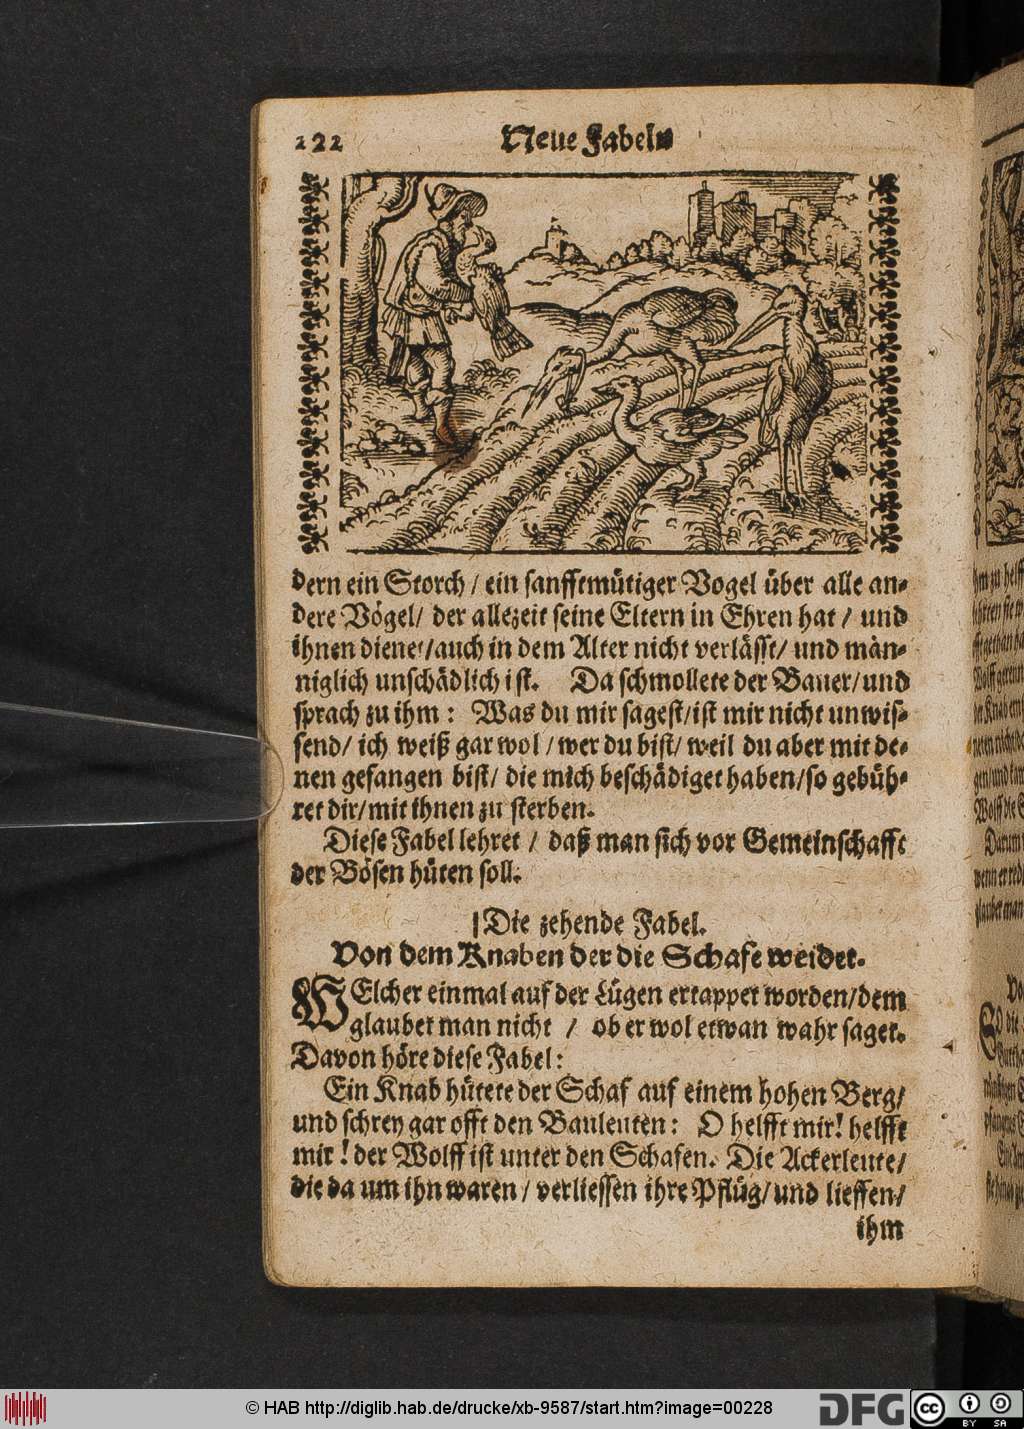 222 Neue Fabeln
dern ein Storch / ein sanfftmütiger Vogel über alle an-
dere Vögel / der allezeit seine Eltern in Ehren hat / und
ihnen dienet / auch in dem Alter nicht verlässt / und män-
niglich unschädlich ist. Da schmollete der Bauer / und
sprach zu ihm : Was du mir sagest / ist mir nicht unwis-
send / ich weiß gar wol / wer du bist / weil du aber mit de-
nen gefangen bist / die mich beschädiget haben / so gebüh-
ret dir / mit ihnen zu sterben.
Diese Fabel lehret / daß man sich vor Gemeinschafft
der Bösen hüten soll.
Die zehende Fabel.
Von dem Knaben der die Schafe weidet.
WElcher einmal auf der Lügen ertappet worden / dem
glaubet man nicht / ob er wol etwan wahr saget.
Davon höre diese Fabel :
Ein Knab hütete der Schaf auf einem hohen Berg /
und schrey gar offt den Bauleuten : O helfft mir! helfft
mir ! der Wolff ist unter den Schafen. Die Ackerleute /
die da um ihn waren / verliessen ihre Pflüg / und lieffen /
ihm
© HAB http://diglib.hab.de/drucke/xb-9587/start.htm?image=00228
DFG
cc BY SA